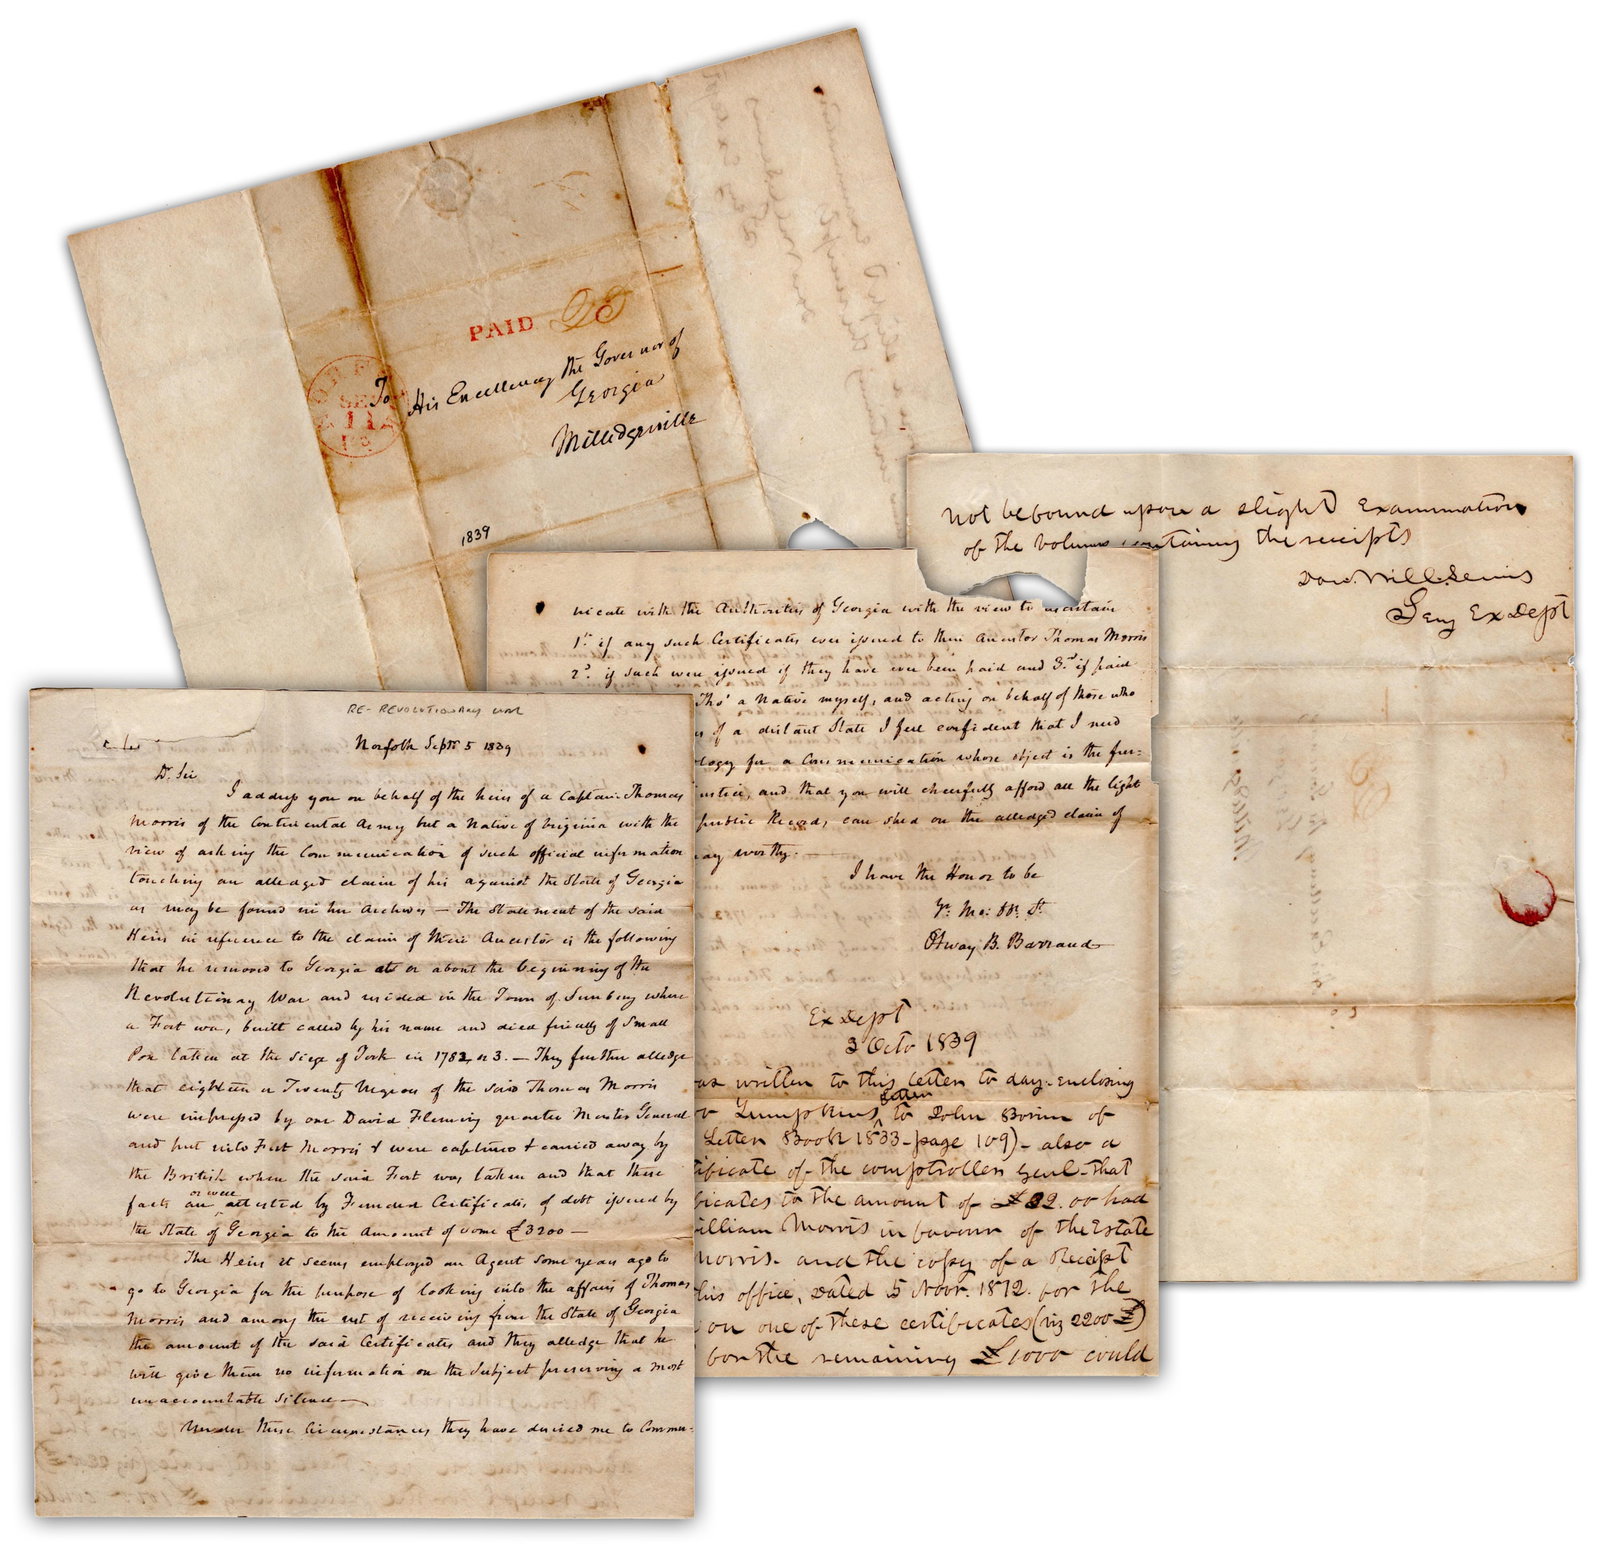 PAID 25
To His Excellency the Governor of
Georgia
Milledgeville
1839
RE- REVOLUTIONARY WAR
Norfolk Septr. 5 1839
Dr. Sir
I address you on behalf of the heirs of a Captain Thomas
Morris of the Continental Army but a native of Virginia with the
view of asking the Communication of such official information
touching an alledged claim of his against the State of Georgia
as may be found in her Archives — The Statement of the said
Heirs in reference to the claim of their Ancestor is the following
that he removed to Georgia at or about the beginning of the
Revolutionary War and resided in the Town of Sunbury where
a Fort was, built called by his name and died finally of Small
Pox taken at the Siege of York in 1782 or 3. — They further alledge
that eighteen or Twenty Negroes of the said Thomas Morris
were impressed by one David Fleming quarter Master General
and put into Fort Morris & were captured & carried away by
the British when the said Fort was taken and that these
facts are or were attested by Funded Certificates of debt issued by
the State of Georgia to the Amount of some £3200 —
The Heirs it seems employed an Agent some years ago to
go to Georgia for the purpose of looking into the affairs of Thomas
Morris and among the rest of receiving from the State of Georgia
the amount of the said Certificates and they alledge that he
will give them no information on the Subject preserving a most
unaccountable silence —
Under these Circumstances they have desired me to Commu-
nicate with the Authorities of Georgia with the view to ascertain
1st. if any such Certificates ever issued to their Ancestor Thomas Morris
2d. if such were issued if they have ever been paid and 3rd if paid
Tho' a native myself, and acting on behalf of those who
of a distant State I feel confident that I need
for a Communication whose object is the fur=
and that you will cheerfully afford all the light
public Record, can shed on the alledged claim of
worthy. —
I have the Honor to be
Yr. Mo: Ob. St.
Otway B. Barraud
Ex Dept
3 Octo 1839
written to this letter to day - enclosing
Lumpkins letter to John Bovin of
Letter Book 1833 - page 109) - also a
of the comptroller genl - that
to the amount of £32.00 had
Morris in favour of the Estate
Morris. and the copy of a Receipt
office, dated 5 Novr. 1812. for the
on one of these certificates (viz 2200 £)
for the remaining £1000 could
not be found upon a slight Examination
of the Volumes containing the receipts
Ex Dept